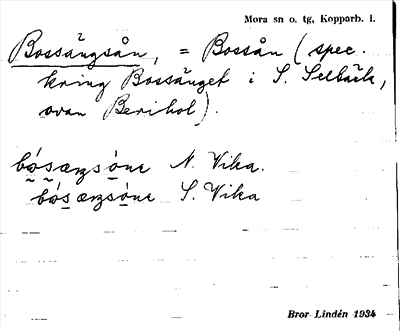 Mora sn o. tg, Kopparb. l.
Bossängsån, = Bossån (spec.
kring Bossänget i S. Selbäck,
ovan Berihol).
bó̠sæŋsó̠ne N. Vika.
bó̠sæŋsó̠ne S. Vika
Bror Lindén 1934